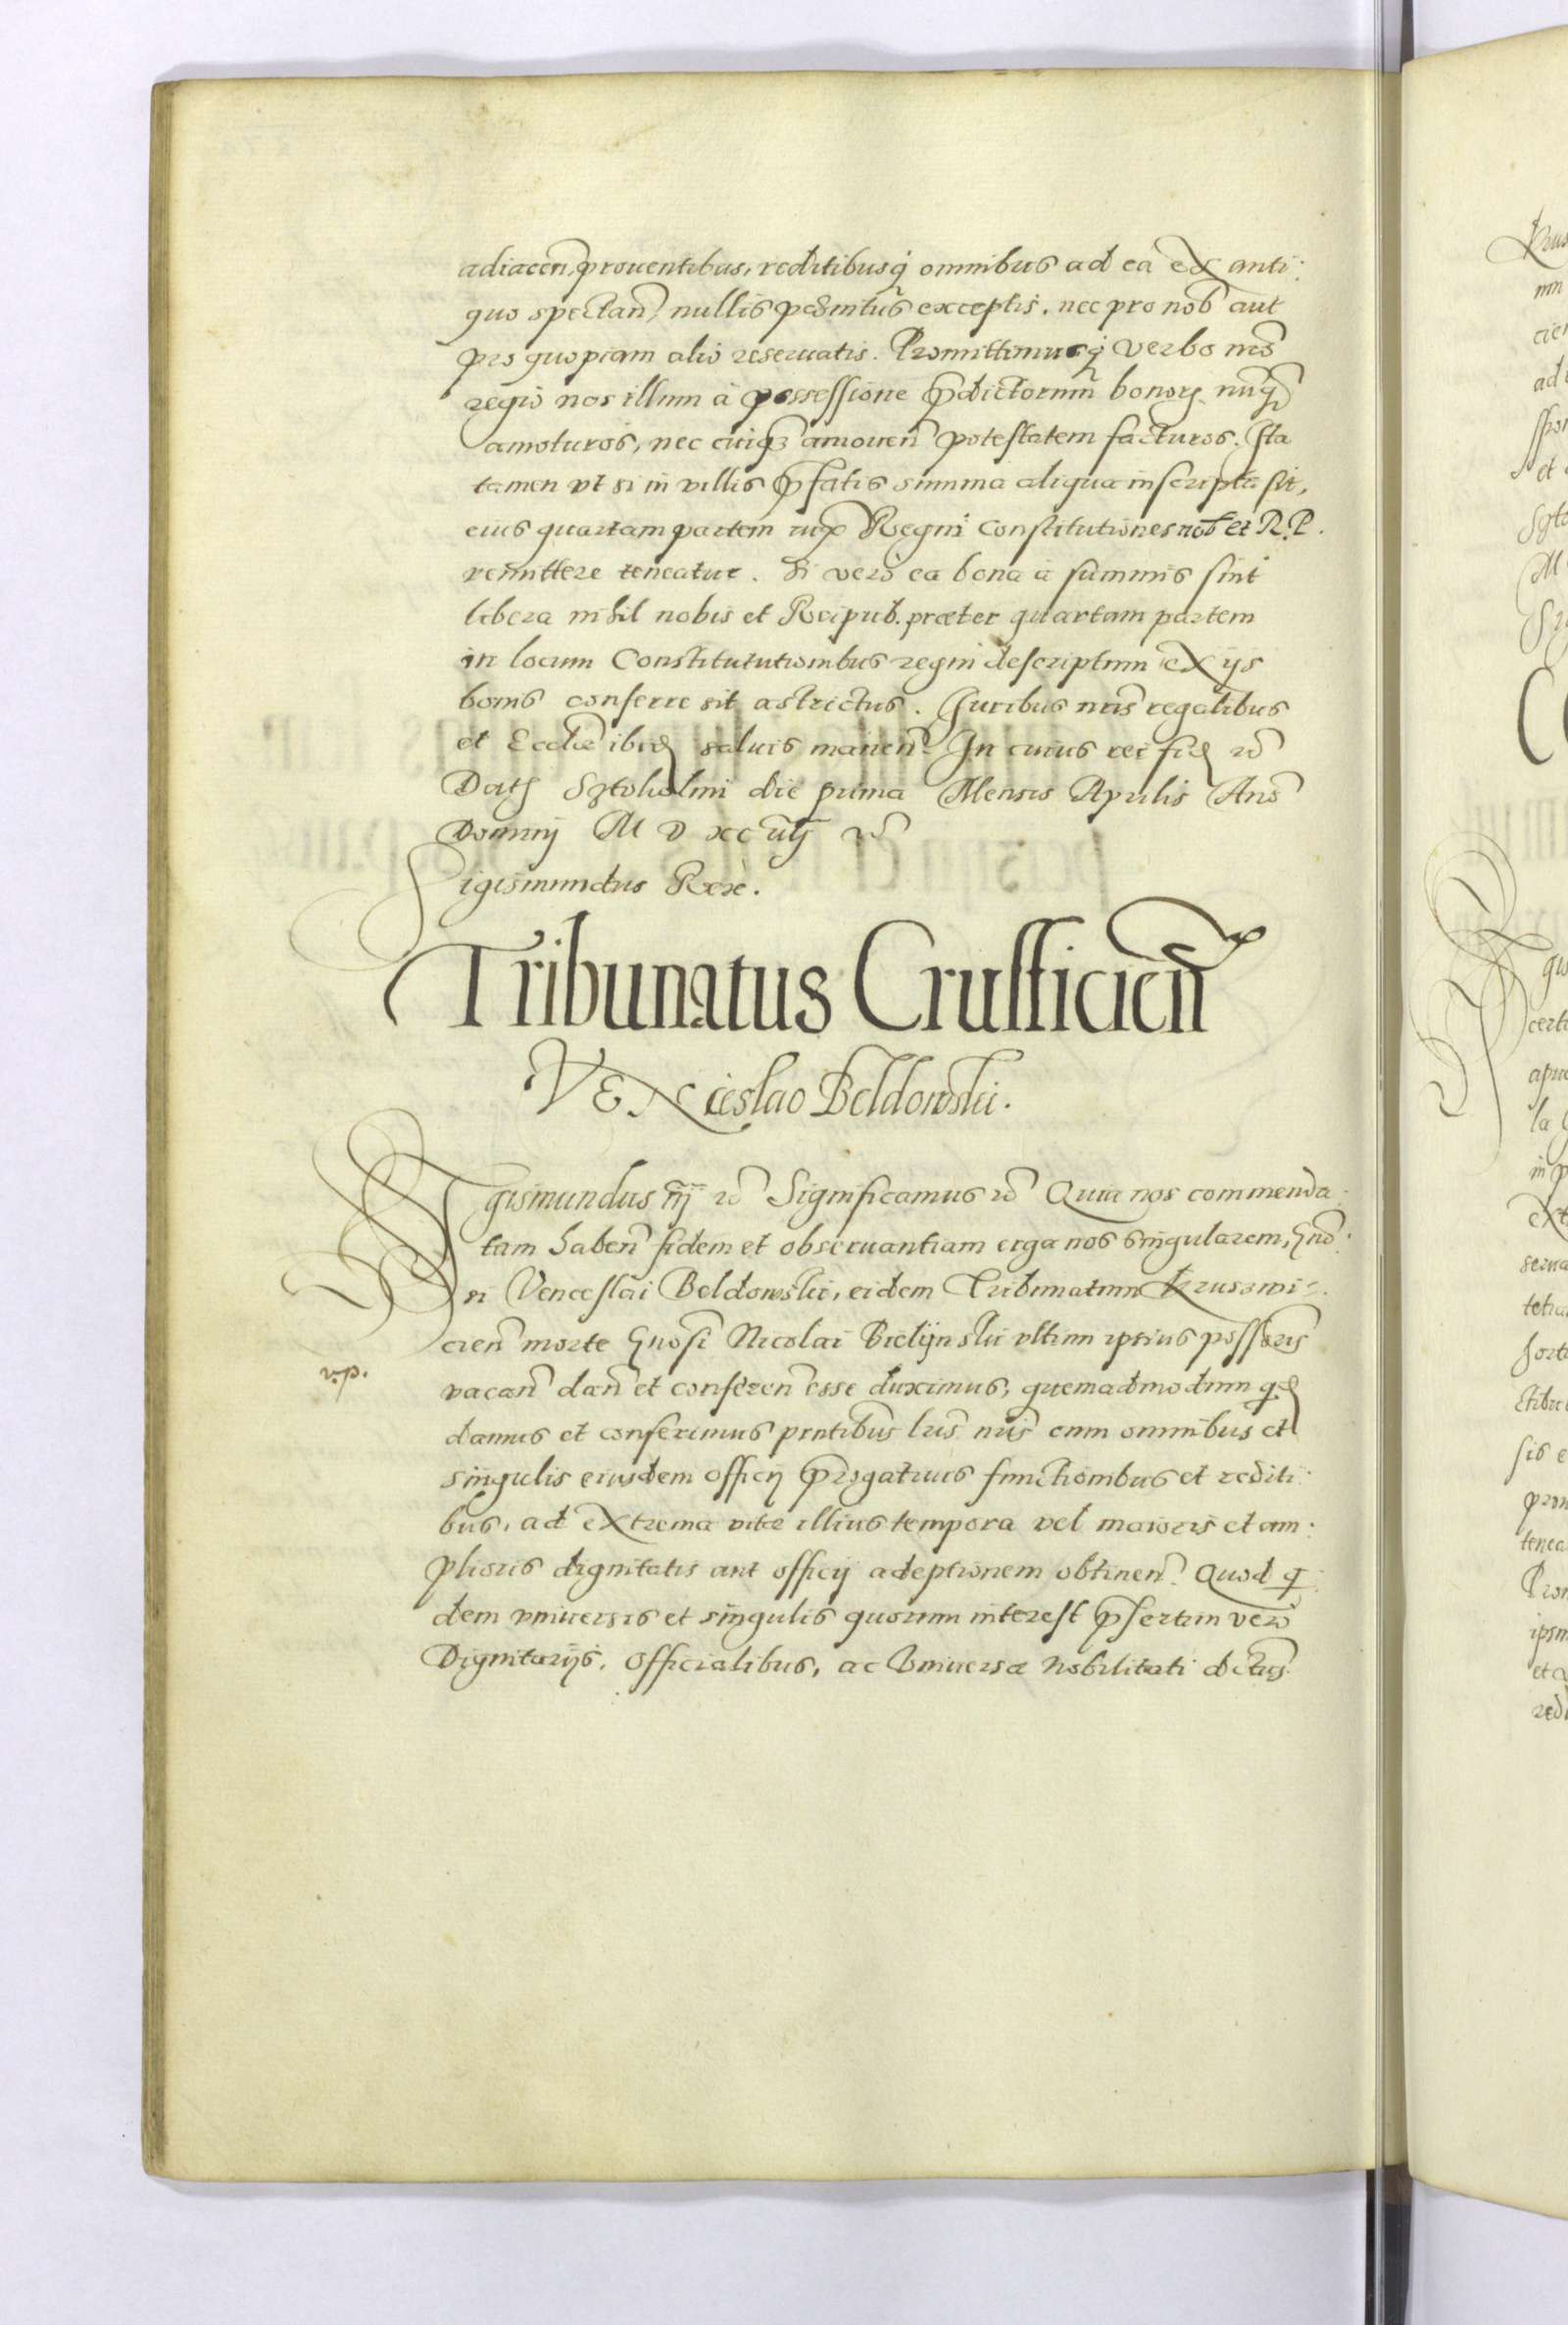 adiacen̄, prouentibus, reditibusq̨ omnibus ad ea ex anti:
quo spectan̄ nullis penitus exceptis. nec pro nob̄ aut
pro quopiam alio reseruatis. Promittimusq̨ verbo nrō
regio nos illum à possessione p̄dictorum bonorꝫ nunq̄
amoturos, nec cuiq̨ȝ amouen̄ potestatem facturos. Ita
tamen vt si in villis p̄fatis summa aliqua inscripta sit,
eius quartam partem iux̄ Regni Constitutiones nob̄ et R.P.
remittere teneatur. Si verò ea bona à summis sint
libera nihil nobis et Reipub. præter quartam partem
in locum Constitututionibus regni descriptum ex ijs
bonis conferre sit astrictus. Iuribus nris̄ regalibus
et Ecclīæ ibid̨ saluis manen̄. In cuius rei fid̨ ꝛc̄
Datꝫ Sztokolmi die prima Mensis Aprilis Anō
Dominij M D xc iiij ꝛc̄
Sigismundus Rex.
Tribunatus Crusficien̄
VENcieslao Beldowskii.
Sigismundus iij ꝛc̄ Significamus ꝛc̄ Quia nos commenda:
tam haben̄ fidem et obseruantiam erga nos singularem, Gnō:
si Venceslai Beldowskii, eidem Tribunatum Kruswi:
cien̄ morte Gnosī Nicolai Bielijnskii vltimi ipsius possōris
v.p.
vacan̄ dan̄ et conferen̄ esse duximus, quemadmodum qd̨
damus et conferimus pntibus̄ lris̄ nris̄ cum omnibus et
singulis eiusdem officij p̄rogatiuis functionibus et rediti:
bus, ad extrema vitæ illius tempora vel maioris et am:
plioris dignitatis aut officij adeptionem obtinen̄. Quod q̄:
dem vniuersis et singulis quorum interest p̄sertim verò
Dignitarijs, Officialibus, ac Vniuersæ Nobilitati